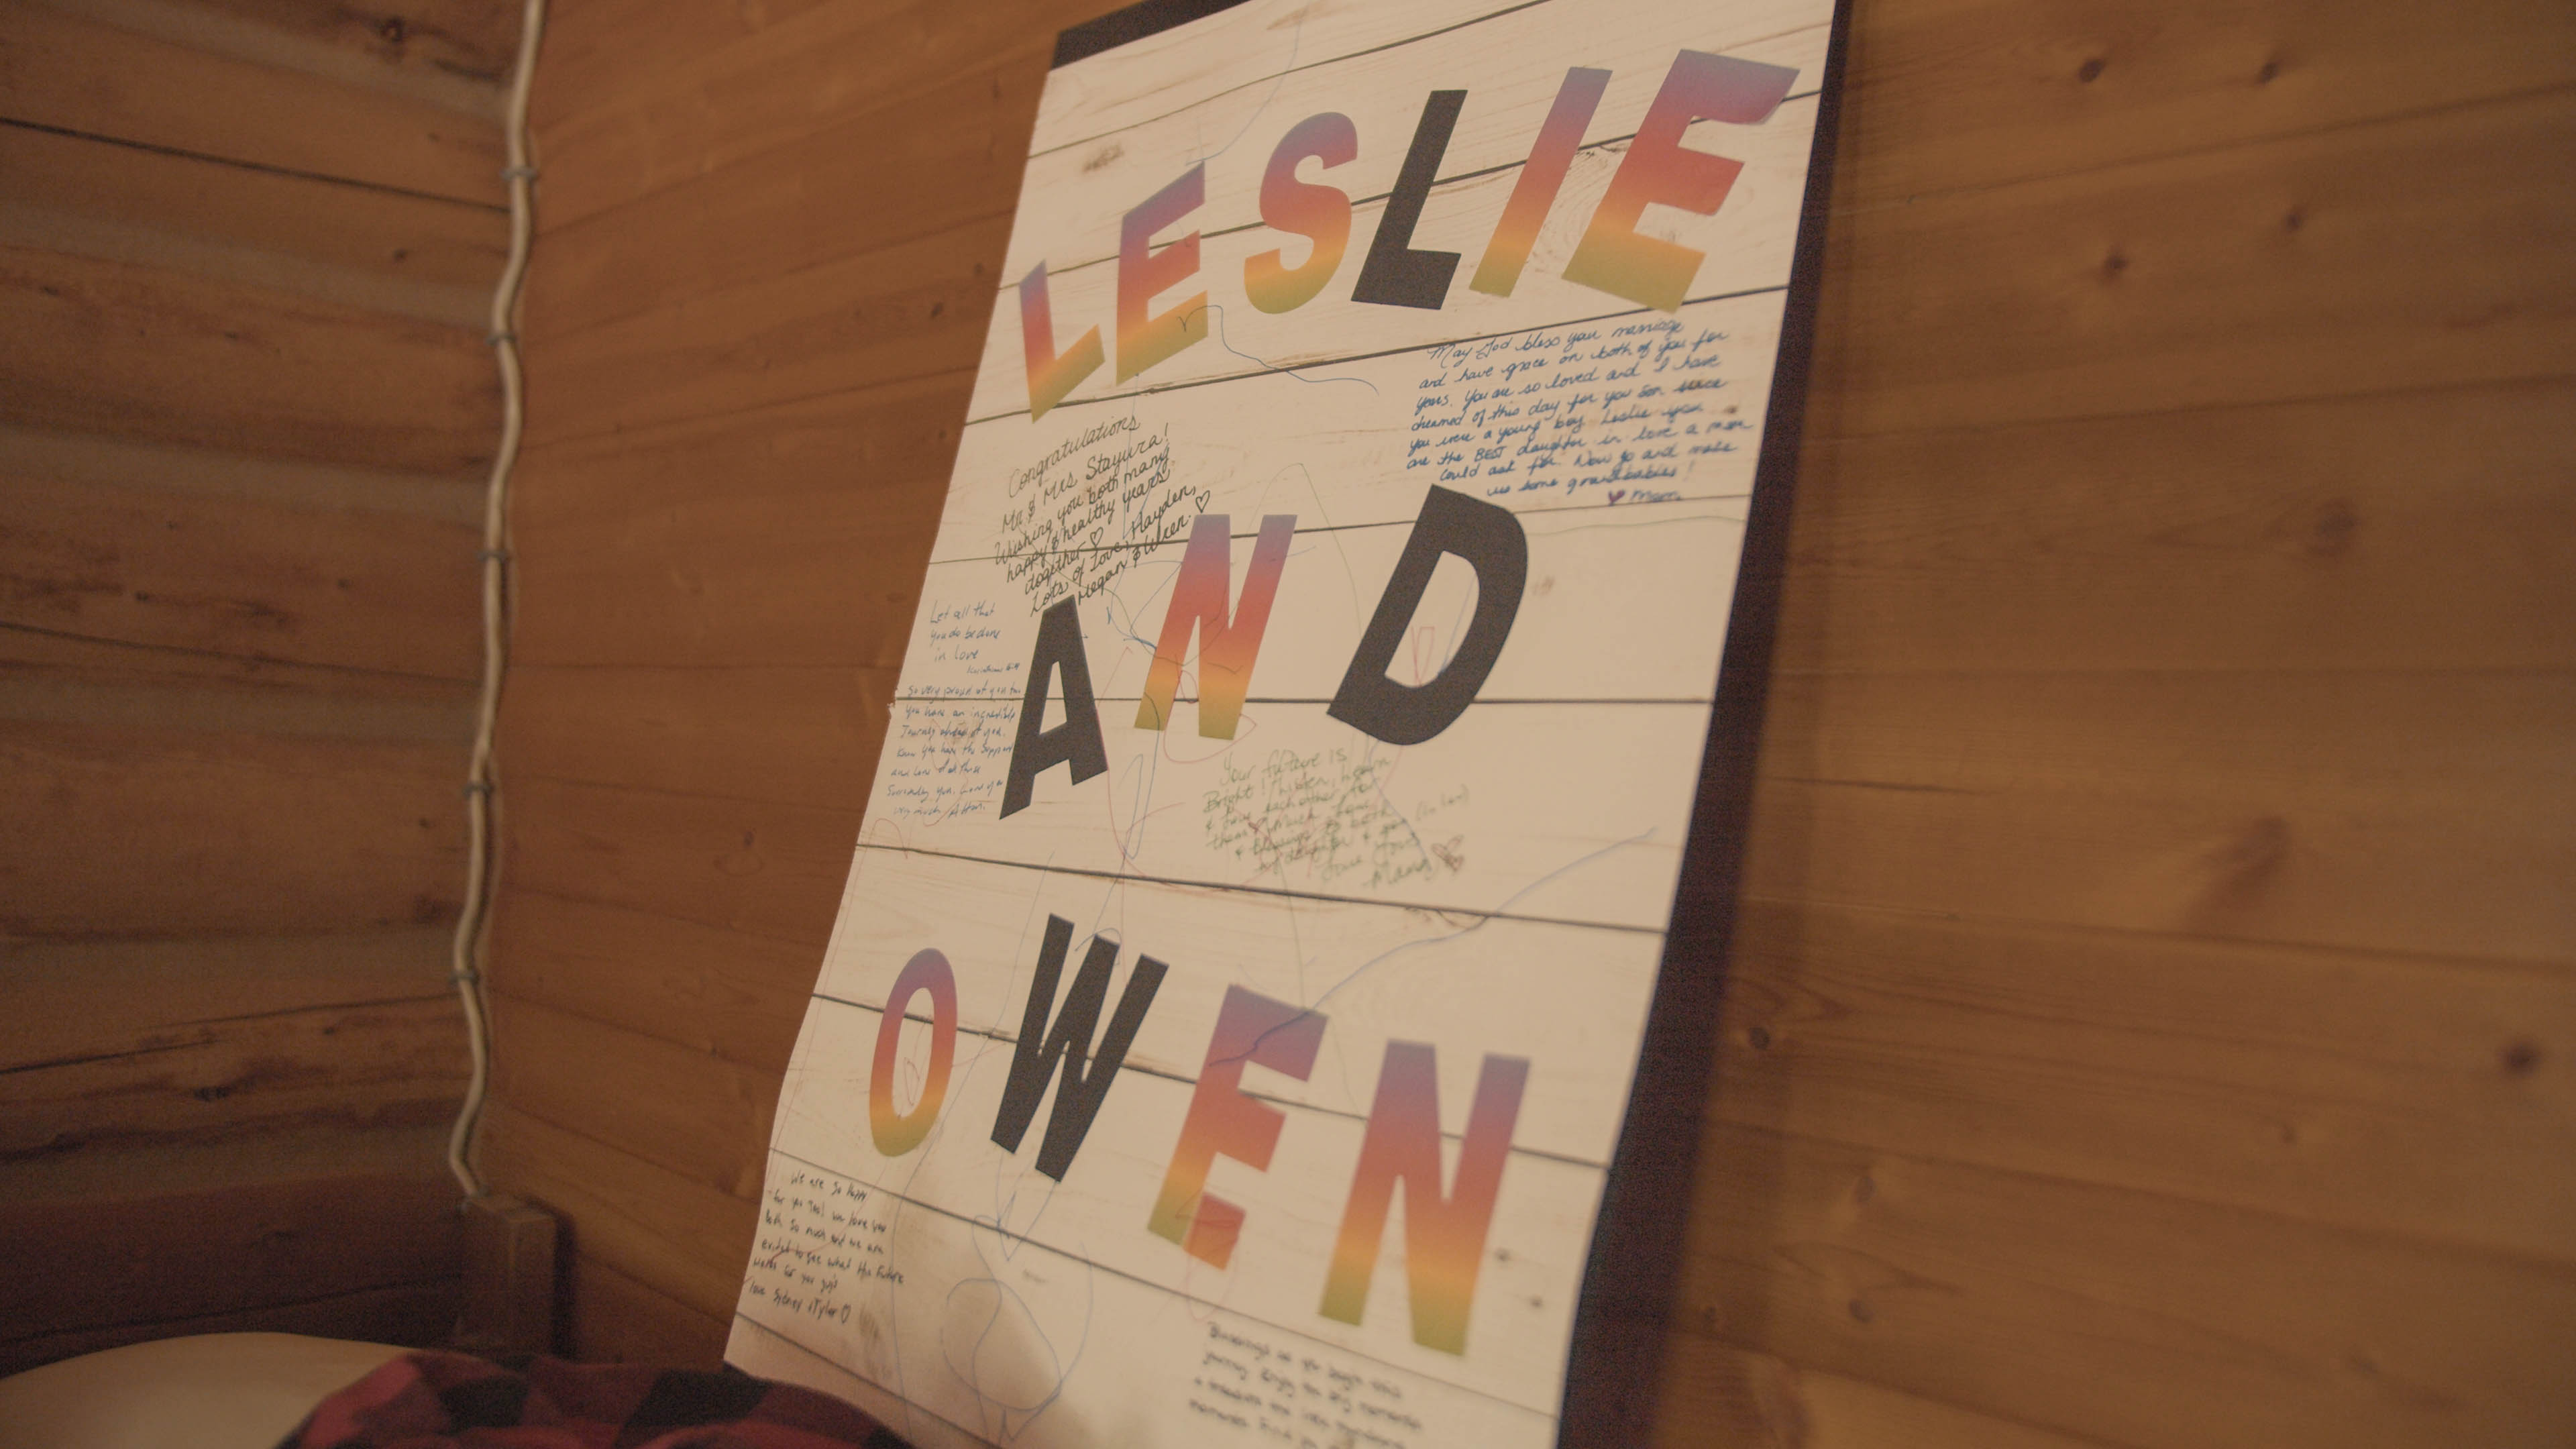 LESLIE
May God bless your marriage
and have grace on both of you for
years. You are so loved and I have
dreamed of this day for you son since
you were a young boy. Leslie you
are the BEST daughter in love a mom
could ask for. Now go and make
us some grandbabies!
♥ Mom
Congratulations
Mr & Mrs
Wishing you both many
happy & healthy years
together ♡
Lots of Love, Hayden,
Megan & Wren. ♡
AND
Let all that
you do be done
in love
So very proud of you two
You have an incredible
Journey ahead of you.
Know you have the support
and love of those
Surrounding you. Love you
very much
Your future is
Bright! Listen, Learn
& love each other, for
& blessings to both
my daughter & you
love
OWEN
We are so happy
for you Too! we love you
both so much and we are
exited to see what the future
Holds for you guys
love Sydney & Tyler ♡
Blessings as you begin this
journey. Enjoy the
memories